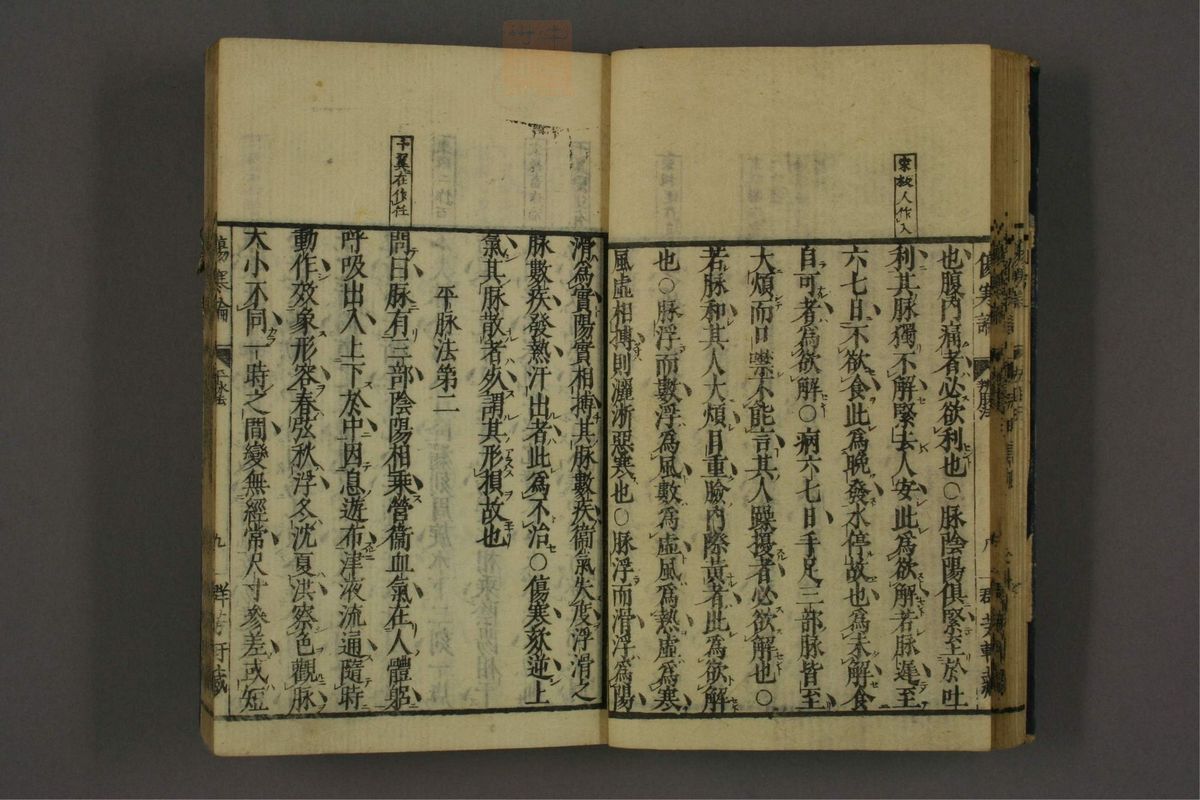 宋板人作入
傷寒論
也腹內痛者必欲利也○脉陰陽俱緊至於吐
利其脉獨不解緊去人安此爲欲解若脉遲至
六七日不欲食此爲晚發水停故也爲未解食
自可者爲欲解○病六七日手足三部脉皆至
大煩而口噤不能言其人躁擾者必欲解也○
若脉和其人大煩目重臉內際黃者此爲欲解
也○脉浮而數浮爲風數爲虛風爲熱虛爲寒
風虛相搏則灑淅惡寒也○脉浮而滑浮爲陽
滑爲實陽實相搏其脉數疾衞氣失度浮滑之
脉數疾發熱汗出者此爲不治○傷寒欬逆上
氣其脉散者死謂其形損故也
平脉法第二
千翼在作任
問曰脉有三部陰陽相乘營衞血氣在人體躬
呼吸出入上下於中因息遊布津液流通隨時
動作效象形容春弦秋浮冬沈夏洪察色觀脉
大小不同一時之間變無經常尺寸參差或短
傷寒論 平脉法 九